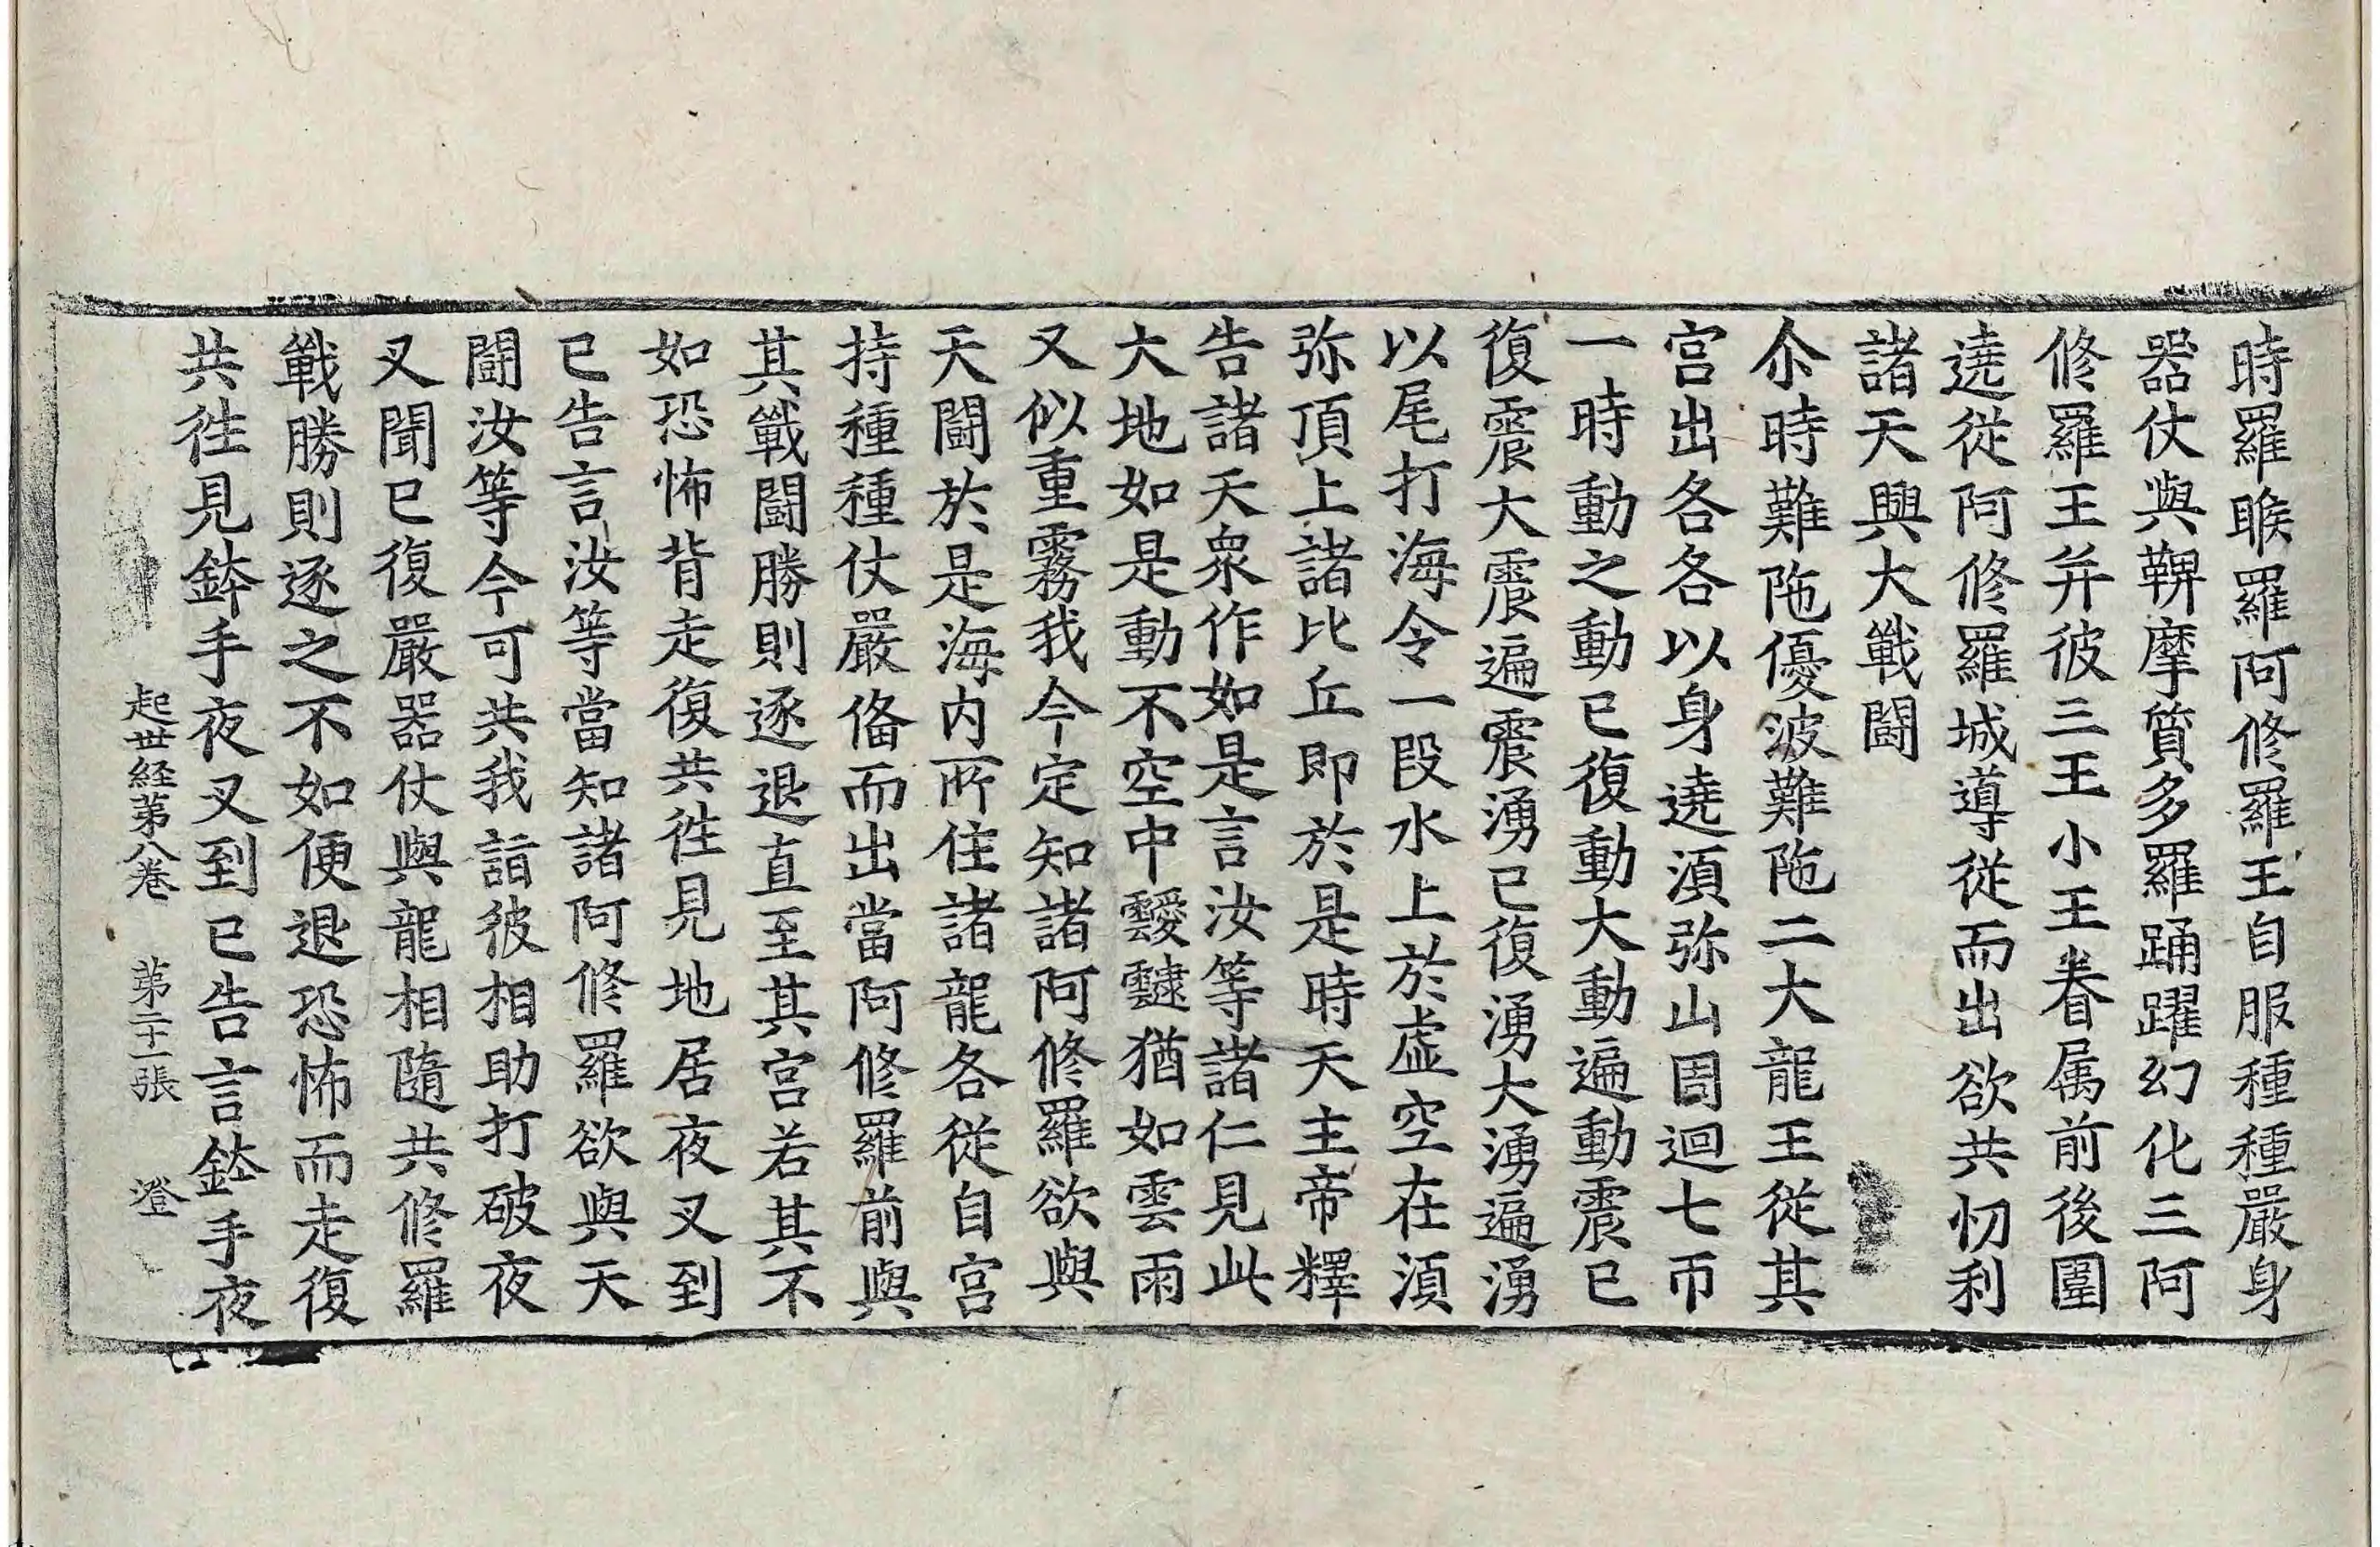 時羅睺羅阿修羅王自服種種嚴身
器仗與鞞摩質多羅踊躍幻化三阿
修羅王并彼三王小王眷属前後圍
遶從阿修羅城導從而出欲共忉利
諸天興大戰鬪
尒時難陁優波難陁二大龍王從其
宮出各各以身遶湏弥山周迴七帀
一時動之動已復動大動遍動震已
復震大震遍震湧已復湧大湧遍湧
以尾打海令一段水上於虛空在湏
弥頂上諸比丘即於是時天主帝釋
告諸天衆作如是言汝等諸仁見此
大地如是動不空中靉靆猶如雲雨
又似重霧我今定知諸阿修羅欲與
天鬪於是海内所住諸龍各從自宮
持種種仗嚴俻而出當阿修羅前與
其戰鬪勝則逐退直至其宮若其不
如恐怖背走復共徃見地居夜叉到
已告言汝等當知諸阿修羅欲與天
鬪汝等今可共我詣彼相助打破夜
叉聞已復嚴器仗與龍相隨共修羅
戰勝則逐之不如便退恐怖而走復
共徃見鉢手夜叉到已告言鉢手夜
起世経第八卷 第二十一張 澄